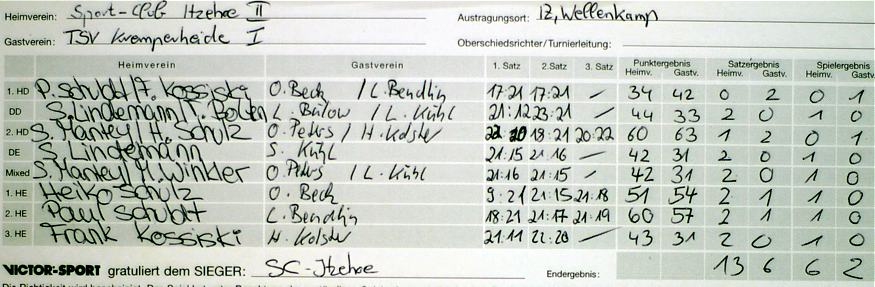 Heimverein: Sport-Club Itzehoe II Austragungsort: IZ, Wellenkamp
Gastverein: TSV Kremperheide I Oberschiedsrichter/Turnierleitung:
Heimverein Gastverein 1. Satz 2. Satz 3. Satz Punktergebnis Heimv. Gastv. Satzergebnis Heimv. Gastv. Spielergebnis Heimv. Gastv.
1. HD P. Schuldt / F. Kossiski O. Beck / L. Bendlin 17:21 17:21 – 34 42 0 2 0 1
DD S. Lindemann / T. L. Bülow / L. Kühl 21:12 23:21 – 44 33 2 0 1 0
2. HD S. Mantey / H. Schulz O. Peters / H. Kolster 22:20 18:21 20:22 60 63 1 2 0 1
DE S. Lindemann S. Kühl 21:15 21:16 – 42 31 2 0 1 0
Mixed S. Mantey / M. Winkler O. Peters / L. Kühl 21:16 21:15 – 42 31 2 0 1 0
1. HE Heiko Schulz O. Beck 9:21 21:15 21:18 51 54 2 1 1 0
2. HE Paul Schuldt L. Bendlin 18:21 21:17 21:19 60 57 2 1 1 0
3. HE Frank Kossiski H. Kolster 21:11 22:20 – 43 31 2 0 1 0
VICTOR-SPORT gratuliert dem SIEGER: SC-Itzehoe Endergebnis: 13 6 6 2